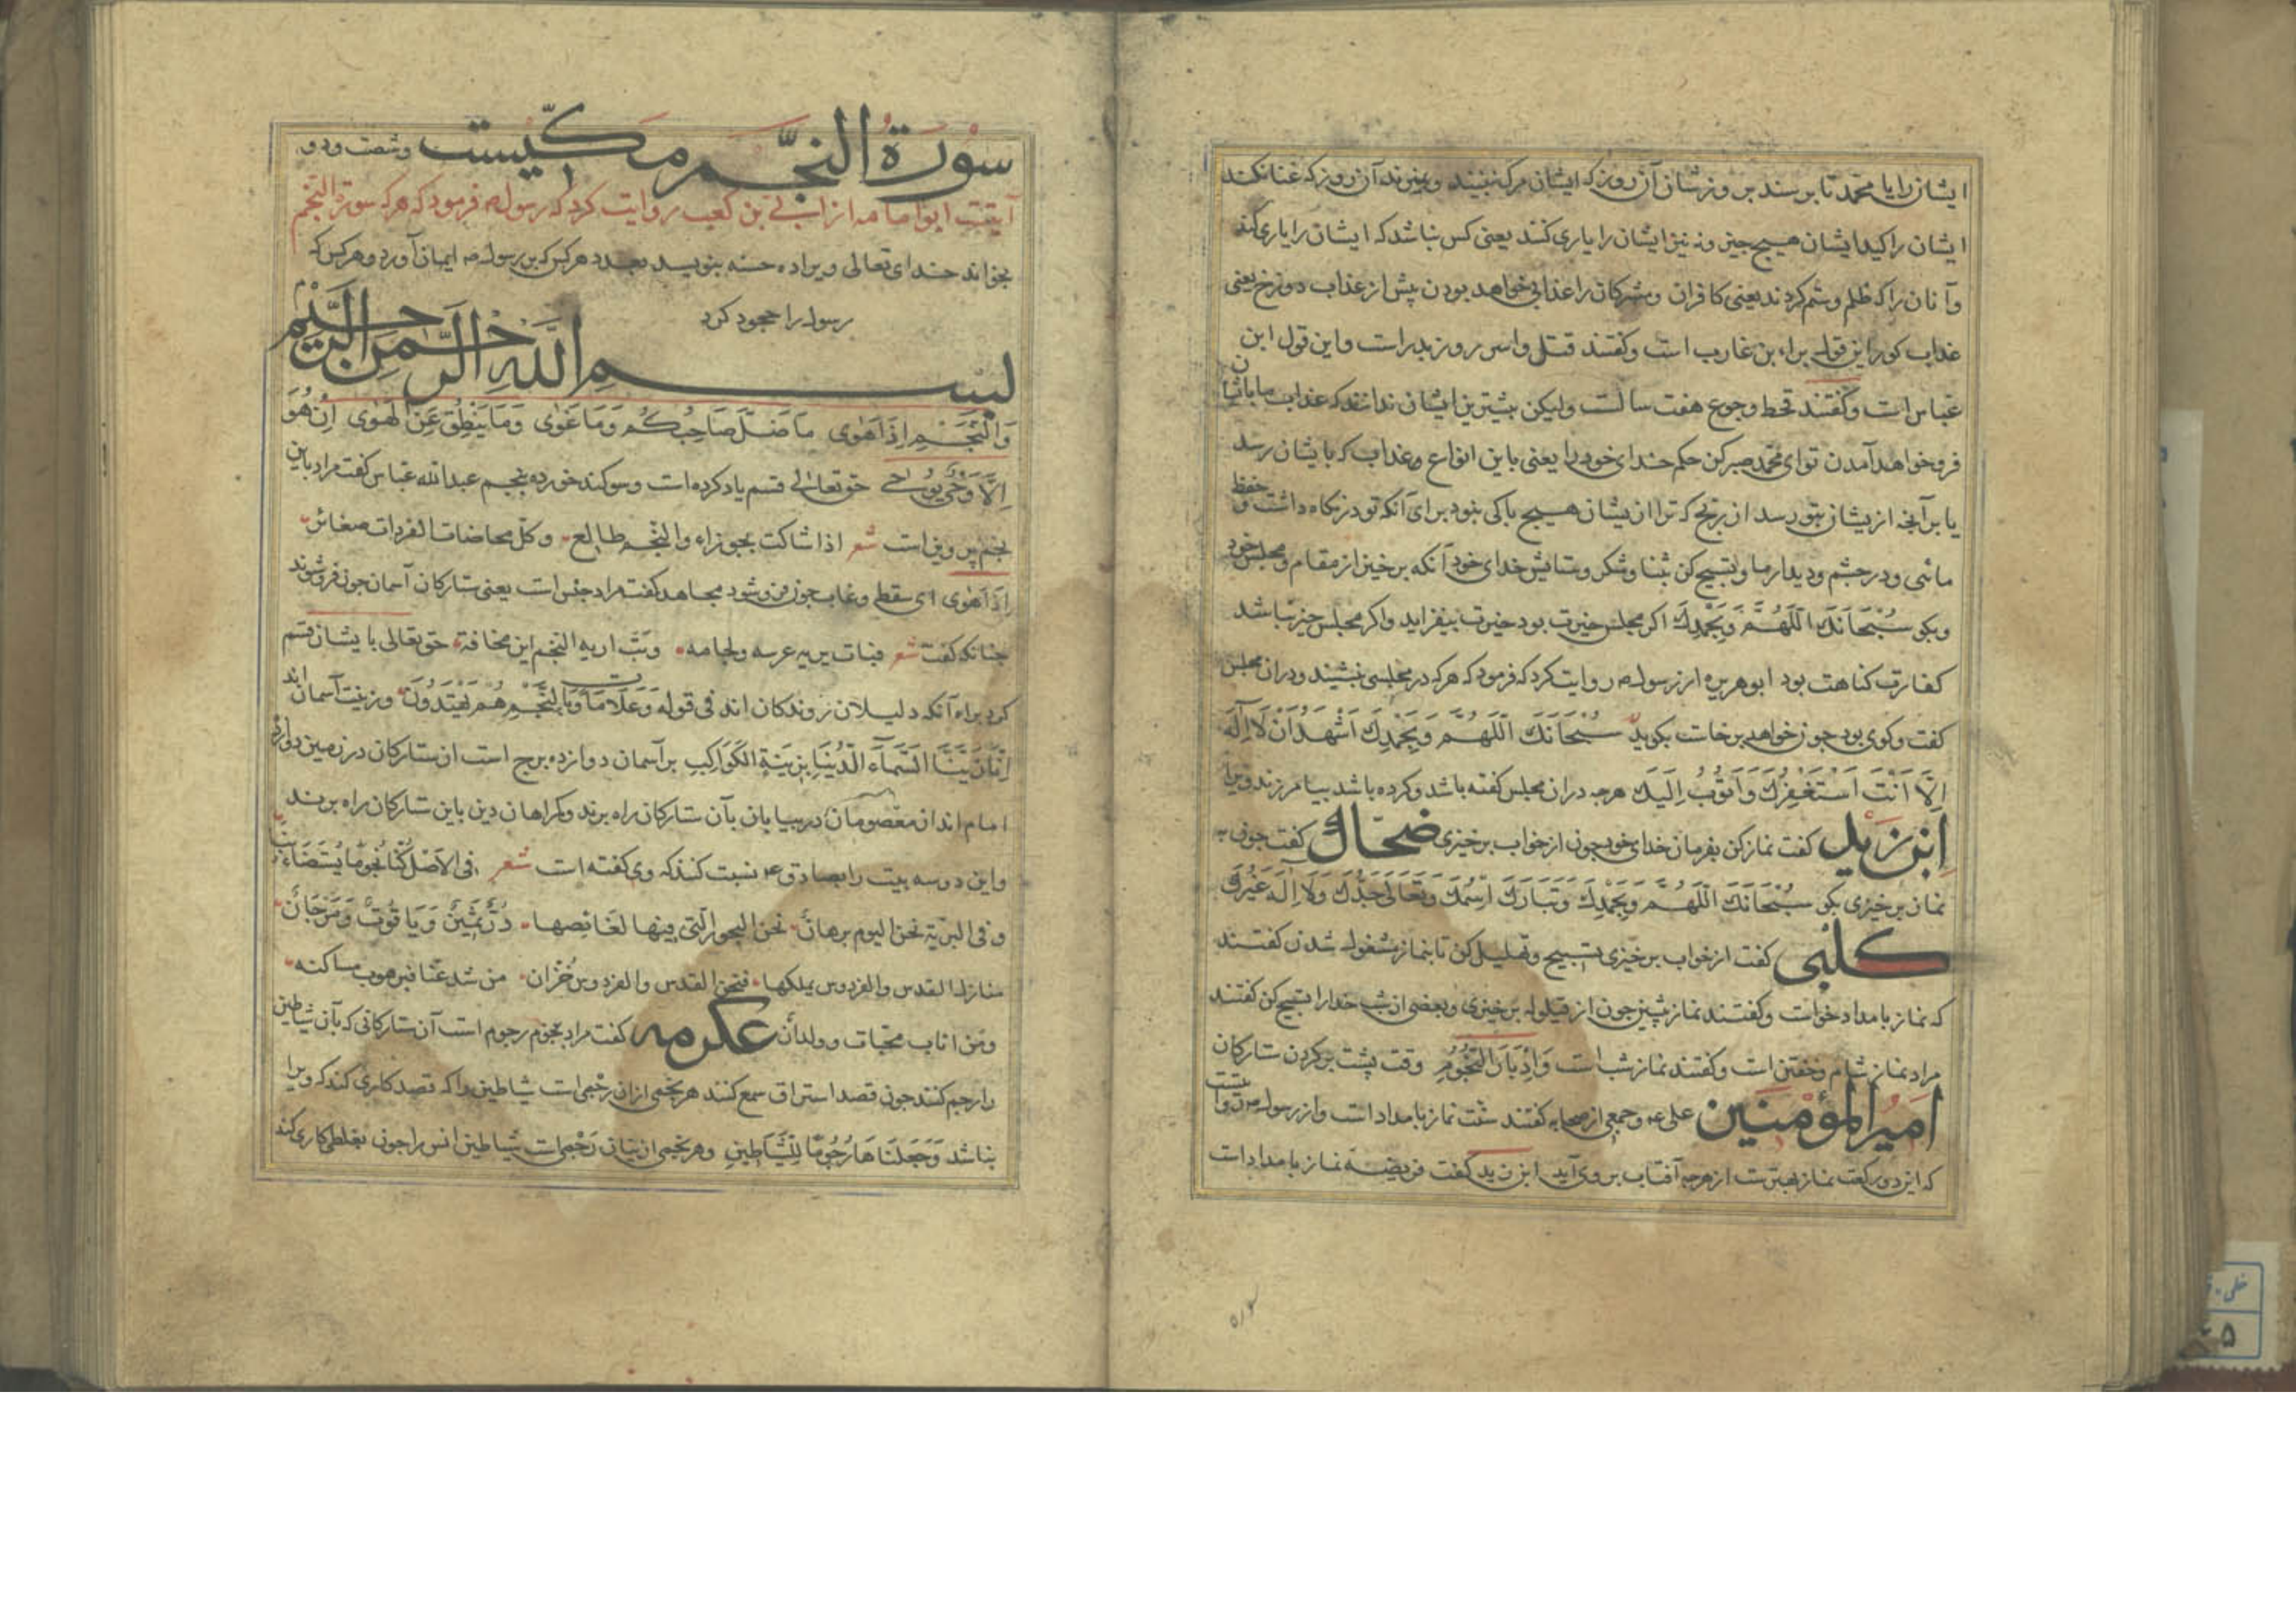 ایشان را یا محمد تا برسند بروزشان آن روز که ایشان مرگ بینند و بمیرند آن روز که غنا نکند
ایشان را کید ایشان هیچ چیز و نه نیز ایشان را یاری کنند یعنی کس نباشد که ایشان را یاری کند
و آنان را که ظلم و ستم کردند یعنی کافران و مشرکان را عذابی خواهد بودن پیش از عذاب دوزخ یعنی
عذاب کور این قول براء بن عازب است و کفتند قتل و اسر روز بدر است و این قول ابن
عباس است و کفتند قحط و جوع هفت سالست ولیکن بیشترین ایشان ندانند که عذاب ما بایشان
فرو خواهد آمدن تو ای محمد صبر کن حکم خدای خود را یعنی باین انواع عذاب که بایشان رسد
یا برآنچه از یشان بتو رسد از رنج که ترا از یشان هیچ باکی نبود برای آنکه تو در نکاه داشت و حفظ
مائی و در چشم و دیدار ما و تسبیح کن بثنا و شکر و ستایش خدای خود آنکه برخیز از مقام و مجلس خود
و بکو سُبْحَانَكَ اللَّهُمَّ وَبِحَمْدِكَ اکر مجلس خیرت بود خیرت بیفزاید و اکر مجلس خیر نباشد
کفارت کناهت بود ابوهریره از رسول ص روایت کرد که فرمود که هر که در مجلسی بنشیند و دران مجلس
کفت و کوی بود چون خواهد برخاست بکوید سُبْحَانَكَ اللَّهُمَّ وَبِحَمْدِكَ اَشْهَدُ اَنْ لَا اِلَهَ
اِلَّا اَنْتَ اَسْتَغْفِرُكَ وَاَتُوبُ اِلَيْكَ هرچه دران مجلس کفته باشد و کرده باشد بیامرزند ویرا
اِبْن زَیْد کفت نماز کن بفرمان خدای خود چون از خواب برخیزی ضحّاک کفت چون به
نماز برخیزی بکو سُبْحَانَكَ اللَّهُمَّ وَبِحَمْدِكَ وَتَبَارَكَ اسْمُكَ وَتَعَالَى جَدُّكَ وَلَا اِلَهَ غَيْرُكَ
کلبی کفت از خواب برخیزی تسبیح و تهلیل کن تا بنماز مشغول شدن کفتند
که نماز بامداد خواست و کفتند نماز پیشین چون از قیلوله برخیزی و بعضی از شب خدا را تسبیح کن کفتند
مراد نماز شام و خفتن است و کفتند نماز شب است وَاِدْبَارَ النُّجُومِ وقت پشت برکردن ستارکان
امیر المؤمنین علی ع و جمعی از صحابه کفتند سنت نماز بامداد است و از رسول ص
که این دو رکعت نماز بهترست از هرچه آفتاب بر وی آید ابن زید کفت فریضه نماز بامداد است
سورة النجم مکیست و شصت و دو
آیتست ابو امامه از ابی بن کعب روایت کرد که رسول ص فرمود که هر که سورة النجم
بخواند خدای تعالی ویرا ده حسنه بنویسد بعدد هر کس که برسول ص ایمان آورد و هر کس که
رسول را جحود کرد
بسم الله الرحمن الرحیم
وَالنَّجْمِ اِذَا هَوَى مَا ضَلَّ صَاحِبُكُمْ وَمَا غَوَى وَمَا يَنْطِقُ عَنِ الْهَوَى اِنْ هُوَ
اِلَّا وَحْيٌ يُوحَى حق تعالی قسم یاد کرده است و سوکند خورده بنجم عبد الله عباس کفت مراد باین
نجم پروین است شعر والنجم طالع وکل
اِذَا هَوَى ای سقط و غاب چون فرو شود مجاهد کفت مراد جنس است یعنی ستارکان آسمان چون فرو شوند
چنانکه کفت شعر حق تعالی بایشان قسم
کرد برای آنکه دلیلان روندکان اند فی قوله وَعَلَامَاتٍ وَبِالنَّجْمِ هُمْ يَهْتَدُونَ و زینت آسمان اند
اِنَّا زَيَّنَّا السَّمَاءَ الدُّنْيَا بِزِينَةٍ الْكَوَاكِبِ بر آسمان دوازده برج است از ستارکان در زمین دوازده
امام اند از معصومان در بیابان بآن ستارکان راه برند و کمراهان دین باین ستارکان راه برند
و این دو سه بیت را بصادق ع نسبت کنند که وی کفته است شعر فی الاصل کُنّا نُجُومًا یُستَضاءُ بنا
و فی البریة نحن الیوم برهان نحن البحور التی فیها لغائصها دُرٌّ ثَمِینٌ وَیَاقُوتٌ وَمَرْجَانٌ
منازل القدس والفردوس یملکها فنحن للقدس والفردوس خُزّان من شذ عنا فبرهوت مساکنه
وَمَن اتانا وولدان عکرمه کفت مراد بنجوم رجوم است آن ستارکانی که بآن شیاطین
را رجم کنند چون قصد استراق سمع کنند هر نجمی ازان رجمی است شیاطین را که قصد کاری کند که ویرا
نباشد وَجَعَلْنَاهَا رُجُومًا لِلشَّيَاطِينِ و هر نجمی از یشان رجمی است شیاطین انس را چون بغلطی کاری کند